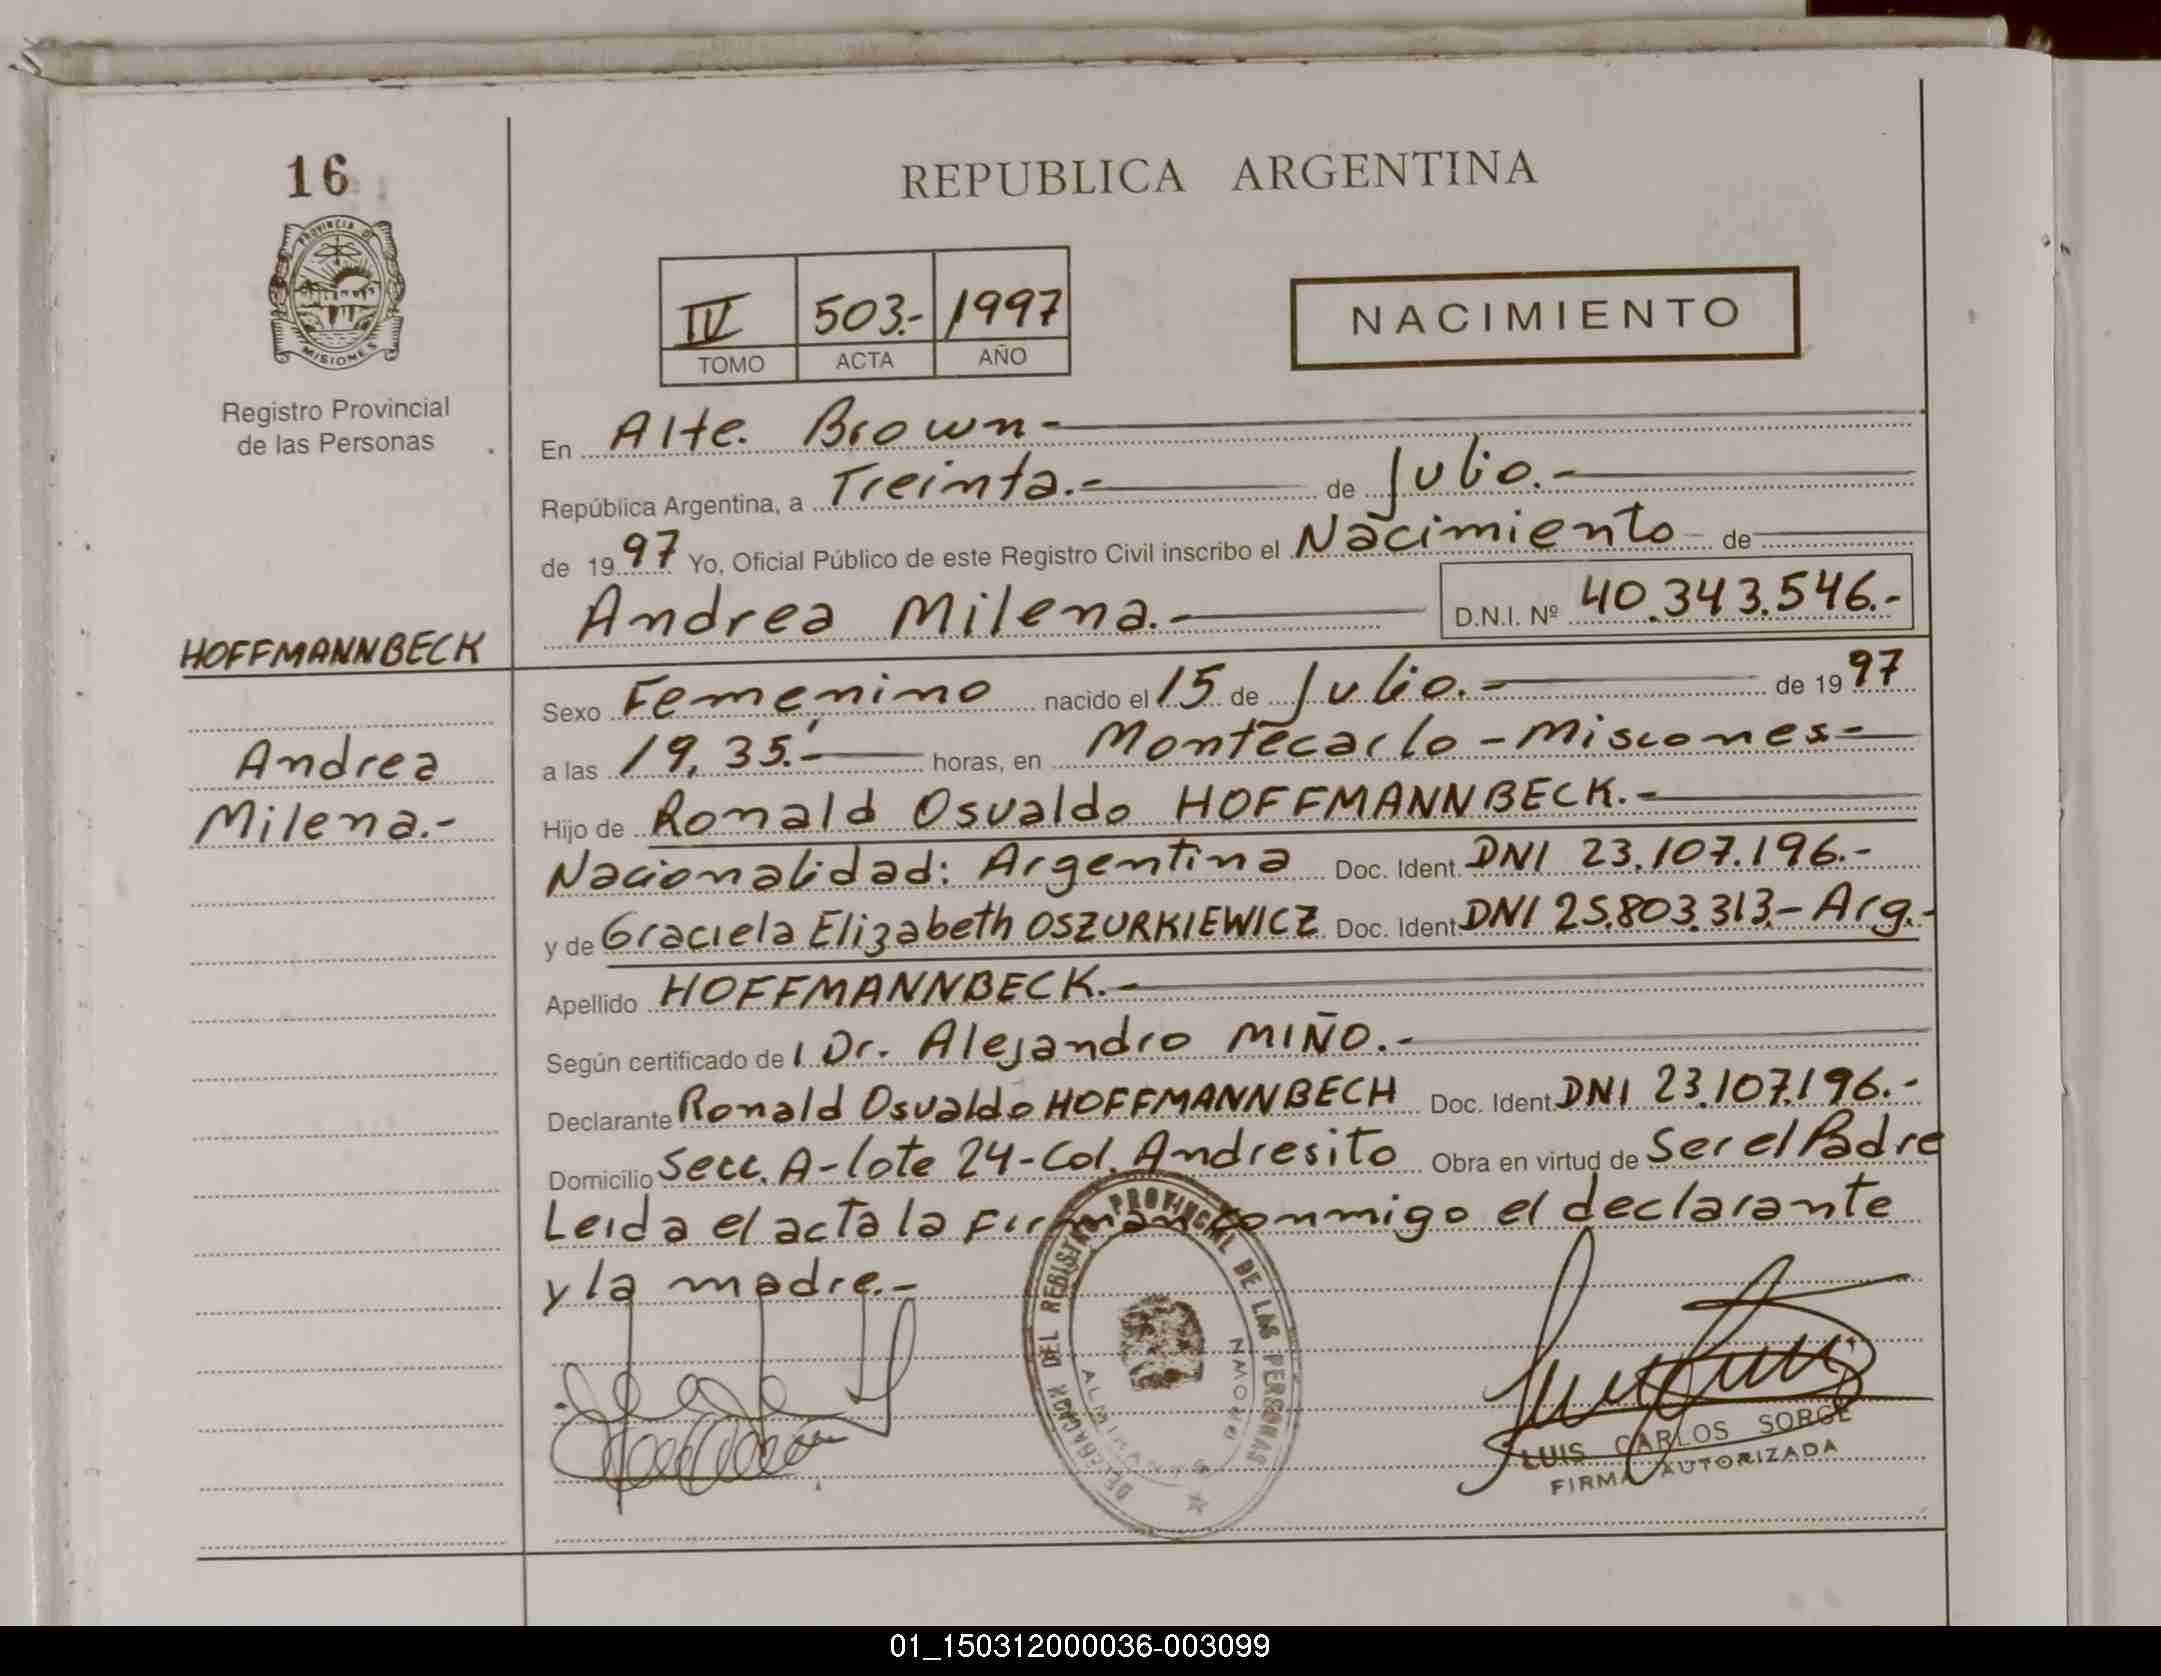 16
PROVINCIA DE
MISIONES
Registro Provincial
de las Personas
HOFFMANNBECK
Andrea
Milena.-
REPUBLICA ARGENTINA
IV 503.- 1997
TOMO ACTA AÑO
NACIMIENTO
En Alte. Brown-
República Argentina, a Treinta.- de Julio.-
de 1997 Yo, Oficial Público de este Registro Civil inscribo el Nacimiento de
Andrea Milena.- D.N.I. Nº 40.343.546.-
Sexo Femenino nacido el 15 de Julio.- de 1997
a las 19,35.- horas, en Montecarlo - Misiones-
Hijo de Ronald Osvaldo HOFFMANNBECK.-
Nacionalidad: Argentina Doc. Ident. DNI 23.107.196.-
y de Graciela Elizabeth OSZURKIEWICZ Doc. Ident. DNI 25.803.313.- Arg.-
Apellido HOFFMANNBECK.-
Según certificado de l Dr. Alejandro MIÑO.-
Declarante Ronald Osvaldo HOFFMANNBECH Doc. Ident. DNI 23.107.196.-
Domicilio Secc. A-lote 24-Col. Andresito Obra en virtud de Ser el Padre
Leida el acta la Firman conmigo el declarante
y la madre.-
DELEGACION DEL REGISTRO PROVINCIAL DE LAS PERSONAS
ALMIRANTE BROWN
LUIS CARLOS SORGE
FIRMA AUTORIZADA
01_150312000036-003099